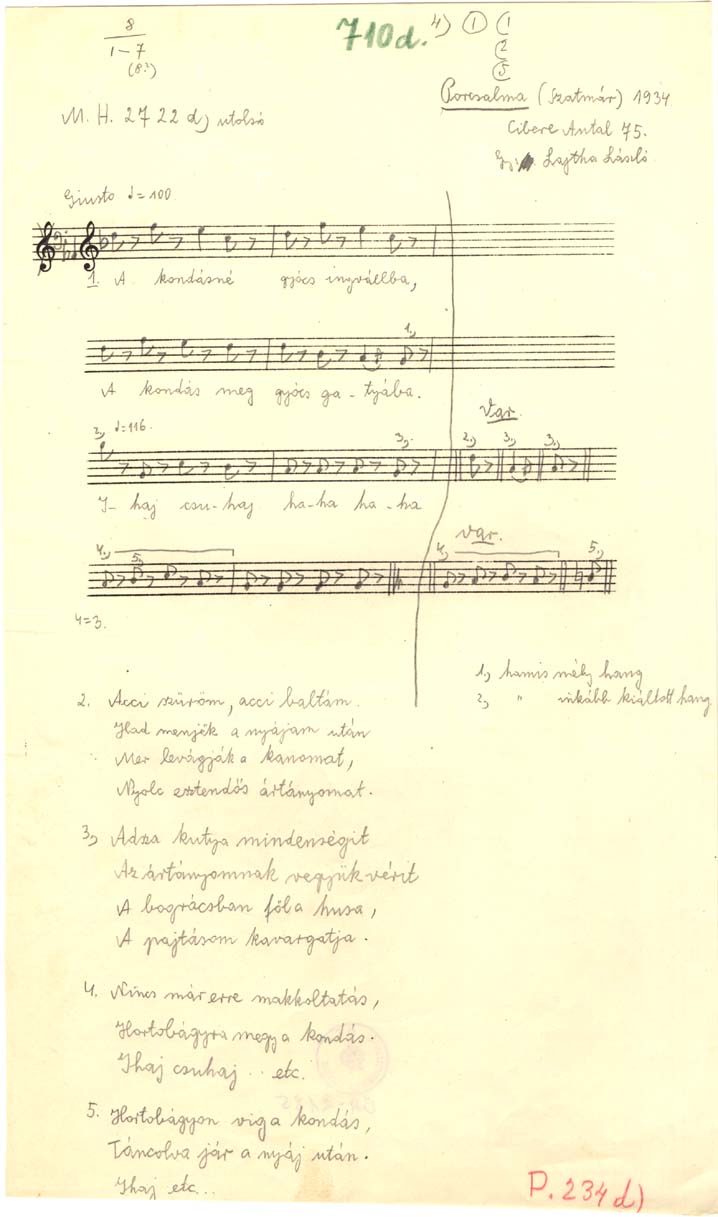 8
1-7
(8?)
710d.
4) 1 1
2
5
Porcsalma (Szatmár) 1934
M. H. 2722 d) utolsó
Cibere Antal 75.
Gy. Lajtha László
Giusto ♩=100
1. A kondásné gyócs ingvállba,
1.)
A kondás meg gyócs ga-tyába.
Var.
2, ♩=116.
3,
2,) 3,) 3,)
I-haj csu-haj ha-ha ha-ha
var.
4,) 5,
4,
5,
4=3.
1, hamis mély hang
2, " inkább kiáltott hang
2. Acci szűröm, acci baltám.
Had menjék a nyájam után
Mer levágják a kanomat,
Nyolc esztendős ártányomat.
3, Adsza kutya mindenségit
Az ártányomnak vegyük vérit
A bográcsban föl a husa,
A pajtásom kavargatja.
4. Nincs már erre makkoltatás,
Hortobágyra megy a kondás.
Ihaj csuhaj .. etc.
5. Hortobágyon vig a kondás,
Táncolva jár a nyáj után.
Ihaj etc..
P. 234 d)